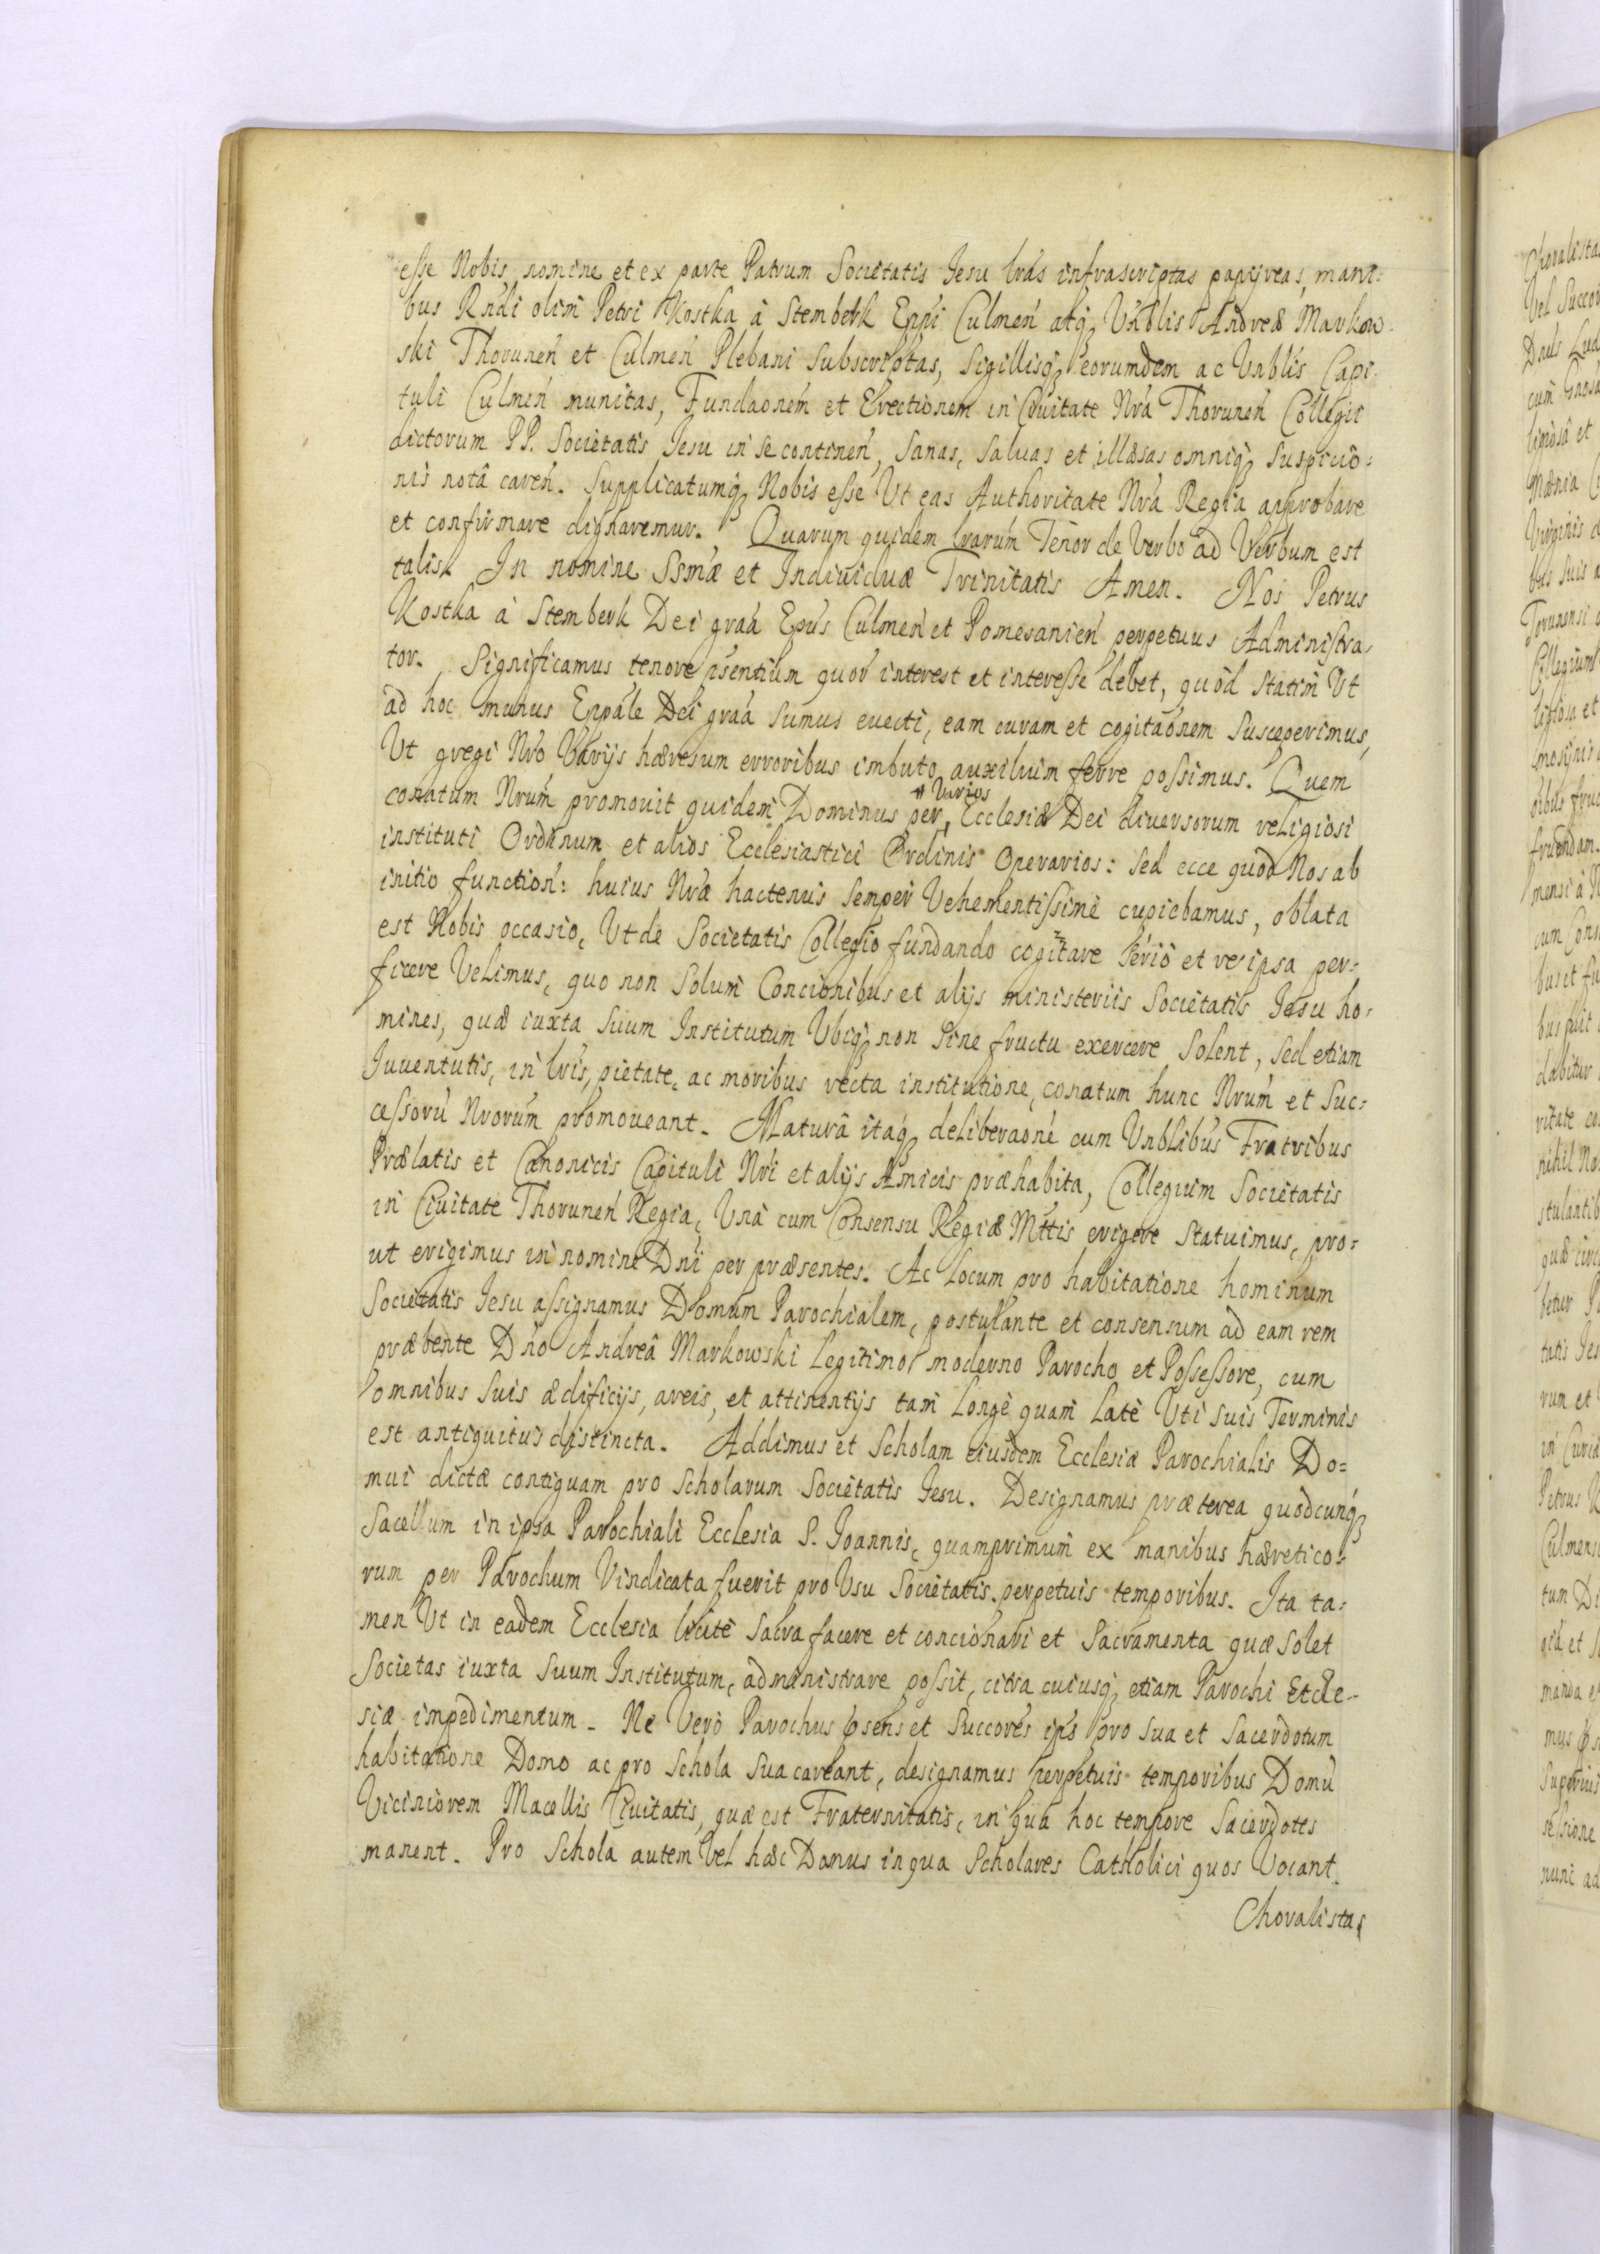 esse Nobis, nomine et ex parte Patrum Societatis Jesu lrás infrascriptas papyreas, mani:
bus Rndi olim Petri Kostka à Stemberk Eppi Culmeń atq; Vnblis Andreæ Markow
ski Thoruneń et Culmeń Plebani subscriptas, Sigillisq; eorundem ac Vnblis Capi:
tuli Culmeń munitas, Fundaonem et Erectionem in Civitate Nra Thoruneń Collegii
dictorum PP. Societatis Jesu in se contineń, Sanas, saluas et illæsas omniq; suspicio:
nis notâ careń. Supplicatumq; Nobis esse Vt eas Authoritate Nra Regia approbare
et confirmare dignaremur. Quarum quidem lrarum Tenor de Verbo ad Verbum est
talis. In nomine Ssmæ et Indiuiduæ Trinitatis Amen. Nos Petrus
Kostka à Stemberk Dei graá Epus Culmeń et Pomesanień perpetuus Administra:
tor. Significamus tenore psentium quor interest et interesse debet, quòd statim Vt
ad hoc munus Eppale Dei graá sumus euecti, eam curam et cogitaonem susceperimus,
Vt gregi Nro Varijs hæresum erroribus imbuto auxilium ferre possimus. Quem
conatum Nrum promouit quidem Dominus per, Ecclesiæ Dei diuersorum religiosi
# Varios
instituti Ordinum et alios Ecclesiastici Ordinis Operarios: sed ecce quod Nos ab
initio function: huius Nræ hactenus semper Vehementissimè cupiebamus, oblata
est Nobis occasio, Vt de Societatis Collegio fundando cogitare seriò et re ipsa per:
ficere Velimus, quo non solum Concionibus et alijs ministeriis Societatis Jesu ho:
mines, quæ iuxta suum Institutum Vbiq; non sine fructu exercere solent, sed etiam
Juuentutis, in lris, pietate, ac moribus recta institutione, conatum hunc Nrum et Suc:
cessorū Nrorum promoueant. Maturâ itaq; deliberaone cum Vnblibus Fratribus
Prælatis et Canonicis Capituli Nri et alijs Amicis præhabita, Collegium Societatis
in Ciuitate Thoruneń Regia, Vnà cum Consensu Regiæ Mttis erigere statuimus, pro:
ut erigimus in nomine Dni per præsentes. Ac locum pro habitatione hominum
Societatis Jesu assignamus Domum Parochialem, postulante et consensum ad eam rem
præbente Dno Andreâ Markowski legitimo moderno Parocho et Possessore, cum
omnibus suis ædificijs, areis, et attinentijs tam longè quam latè Vti suis Terminis
est antiquitus distincta. Addimus et Scholam eiusdem Ecclesiæ Parochialis Do=
mui dictæ contiguam pro scholarum Societatis Jesu. Designamus præterea quodcunq;
Sacellum in ipsa Parochiali Ecclesia S. Joannis, quamprimum ex manibus hæretico:
rum per Parochum Vindicata fuerit pro Vsu Societatis perpetuis temporibus. Ita ta:
men Vt in eadem Ecclesia licitè sacra facere et concionari et Sacramenta quæ solet
Societas iuxta suum Institutum, administrare possit, citra cuiusq; etiam Parochi Eccle-
siæ impedimentum. Ne Verò Parochus psens et Succores ips pro sua et Sacerdotum
habitatione Domo ac pro Schola sua careant, designamus perpetuis temporibus Domū
Viciniorem Macellis Ciuitatis, quæ est Fraternitatis, in qua hoc tempore Sacerdotes
manent. Pro Schola autem Vel hæc Domus in qua Scholares Catholici quos Vocant
Choralistas